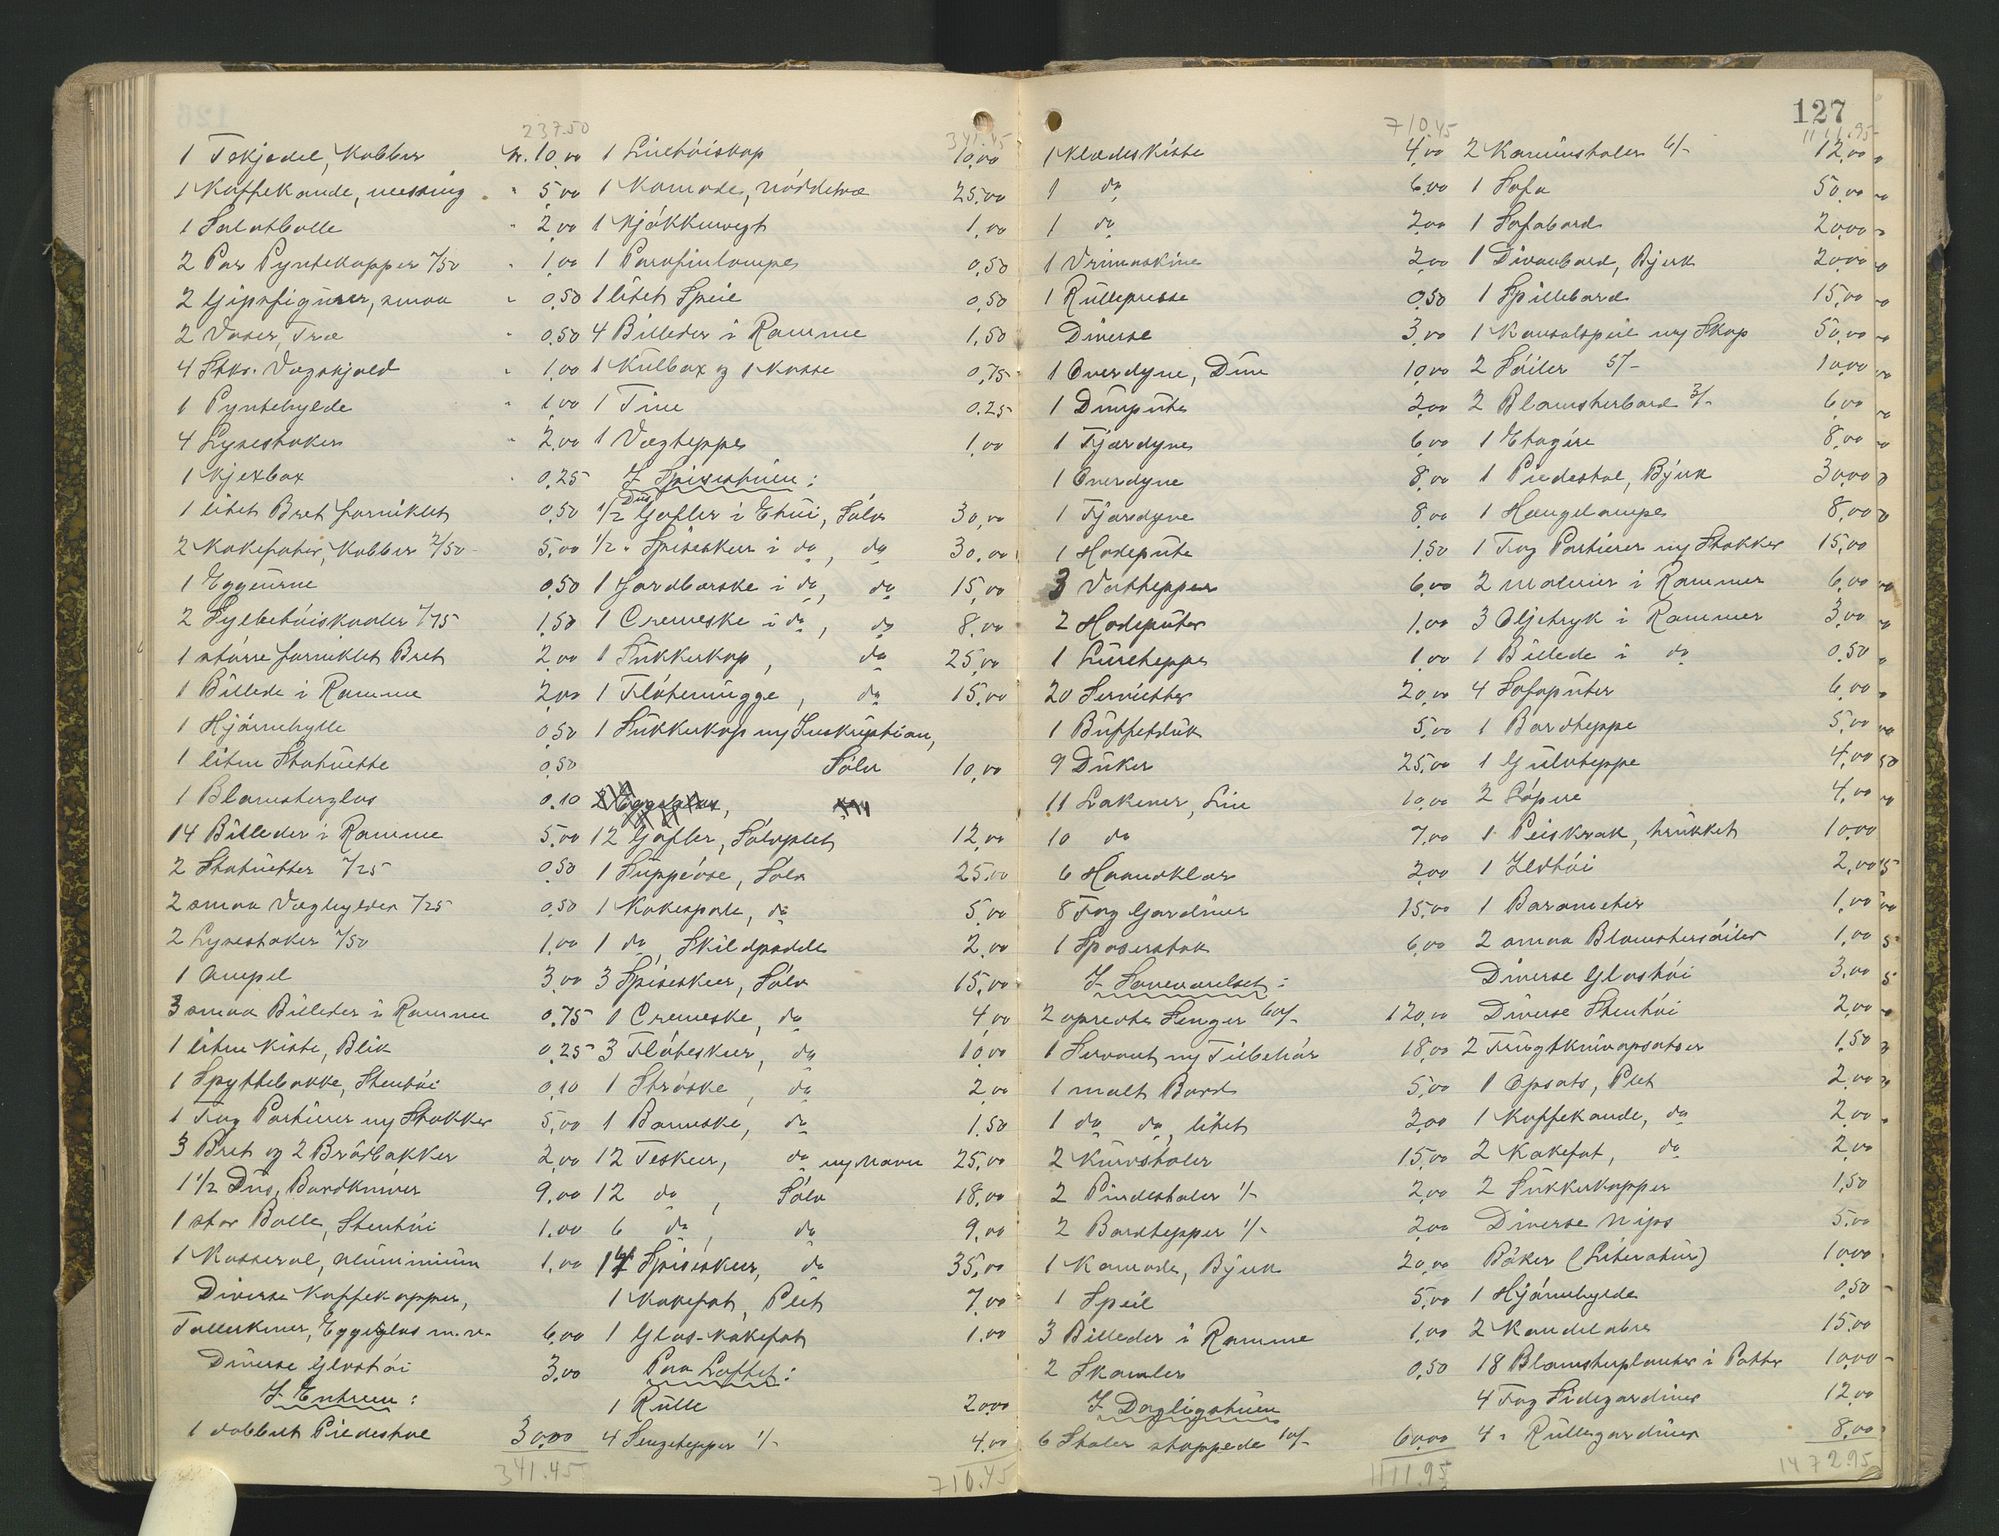 237.50
1 Tekjedel, Kobber Kr. 10,00
1 Kaffekande, messing " 5,00
1 Salatbolle " 2,00
2 Par Pyntekopper a/50 " 1,00
2 Gipsfigurer, smaa " 0,50
2 Vaser, Træ " 0,50
4 Stkr. Vægskjold " 1,00
1 Pyntehylde " 1,00
4 Lysestaker " 2,00
1 Kjexbox " 0,25
1 litet Bret forniklet 0,50
2 Kakefater, Kobber 2/50 5,00
1 Eggeurne 0,50
2 Syltetøiskaaler a/75 1,50
1 større forniklet Bret 2,00
1 Billede i Ramme 2,00
1 Hjørnehylle 0,50
1 liten Statuette 0,50
1 Blomsterglas 0,10
14 Billeder i Ramme 5,00
2 Statuetter a/25 0,50
2 smaa Væghylder a/25 0,50
2 Lysestaker a/50 1,00
1 Ampel 3,00
3 smaa Billeder i Ramme 0,75
1 liten Kiste, Blik 0,25
1 Spyttebakke, Stentøi 0,10
1 Fag Portierer m/ Stokker 5,00
3 Bret og 2 Brødbakker 2,00
1 1/2 Dus. Bordkniver 9,00
1 stor Bolle, Stentøi 1.00
1 Kasserol, Aluminium 1,00
Diverse Kaffekopper,
Tallerkener, Eggeglas m.v. 6,00
Diverse Glastøi 3,00
I Entreen:
1 dobbelt Piedestal 30,00
341.45
341.45
1 Linetøiskap 10,00
1 Komode, Nøddetræ 25,00
1 Kjøkkenvegt 1,00
1 Parafinlampe 0,50
1 litet Speil 0,50
4 Billeder i Ramme 1,50
1 Kulbox og 1 Kasse 0,75
1 Tine 0,25
1 Vægteppe 1,00
I Spisestuen:
1/2 Dus Gafler i Etui, Sølv 30,00
1/2 " Spiseskeer i do, do 30,00
1 Jordbærske i do, do 15,00
1 Cremeske i do, do 8,00
1 Sukkerkop, do 25,00
1 Fløtemugge, do 15,00
1 Sukkerkop m/ Inskription,
Sølv 10,00
2 Eggeglas,
12 Gafler, Sølvplet 12,00
1 Suppeøse, Sølv 25,00
1 Kakespade, do 5,00
1 do, Skildpadde 2,00
3 Spiseskeer, Sølv 15,00
1 Cremeske, do 4,00
3 Fløteskeer, do 10,00
1 Strøske, do 2,00
1 Barneske, do 1.50
12 Teskeer, do m/ Navn 25,00
12 do, Sølv 18,00
6 do, do 9,00
14 Spiseskeer, do 35,00
1 Kakefat, Plet 7,00
1 Glas-Kakefat 1.00
Paa Loftet:
1 Rulle 20,00
4 Sengetepper 1/- 4,00
710.45
710.45
1 Klædeskiste 4,00
1 do 6,00
1 do 2,00
1 Vrimaskine 2,00
1 Rullepresse 0,50
Diverse 3,00
1 Overdyne, Dun 10,00
1 Dunpute 2,00
1 Fjærdyne 6,00
1 Overdyne 8,00
1 Fjærdyne 8,00
1 Hodepute 1,50
3 Vattepper 6,00
2 Hodeputer 1,00
1 Lureteppe 1,00
20 Servietter 20,00
1 Buffetduk 5,00
9 Duker 25,00
11 Lakener, Lin 10,00
10 do 7,00
6 Haandklær 2,00
8 Fag Gardiner 15,00
1 Spaserstok 6,00
I Soveværelset:
2 opredte Senger 60/- 120,00
1 Servant m/ Tilbehør 18,00
1 malt Bord 5,00
1 do do, litet 2,00
2 Kurvstoler 15,00
2 Piedestaler 1/- 2,00
2 Bordtepper 1/- 2,00
1 Komode, Bjerk 20,00
1 Speil 5,00
3 Billeder i Ramme 1,00
2 Skamler 0,50
I Dagligstuen
6 Stoler stoppede 10/- 60,00
1111.95
127
1111.95
2 Kaminstoler 6/- 12,00
1 Sofa 50,00
1 Sofabord 20,00
1 Divanbord, Bjerk 20,00
1 Spillebord 15,00
1 Konsolspeil m/ Skap 50,00
2 Søiler 5/- 10,00
2 Blomsterbord 3/- 6,00
1 Etagère 8,00
1 Piedestal, Bjerk 30,00
1 Hængelampe 8,00
1 Fag Portierer m/ Stokker 15,00
2 Malerier i Rammer 6,00
3 Oljetryk i Rammer 3,00
1 Billede i do 0,50
4 Sofaputer 6,00
1 Bordteppe 5,00
1 Gulvteppe 4,00
2 Løpere 4,00
1 Peiskrak, trukket 10,00
1 Ildtøi 2,00
1 Barometer 1,00
2 smaa Blomstersøiler 1,00
Diverse Glastøi 3,00
Diverse Stentøi 2,00
2 Frugtknivopsatser 1,50
1 Opsats, Plet 2,00
1 Kaffekande, do 2,00
2 Kakefat, do 2,00
2 Sukkerkopper 1,50
Diverse Nips 5,00
Bøker (Literatur) 10,00
1 Hjørnehylde 0,50
2 Kandelabre 15,00
18 Blomsterplanter i Potter 10,00
4 Fag Sidegardiner 12,00
4 " Rullegardiner 8,00
1472.95